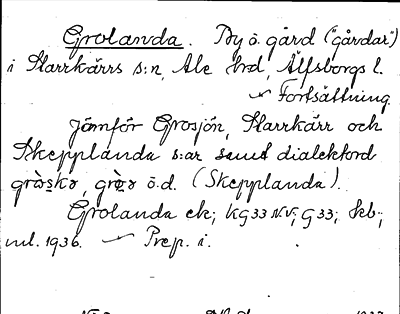 Grolanda. By o. gård ("gårdar")
i Starrkärrs s:n, Ale hrd, Älfsborgs l.
Fortsättning.
Jämför Grosjön, Starrkärr och
Skepplanda s:ar samt dialektord
ö.d. (Skepplanda).
Grolanda ek; KG33NV; G33; Skb;
1936. Prep. i.